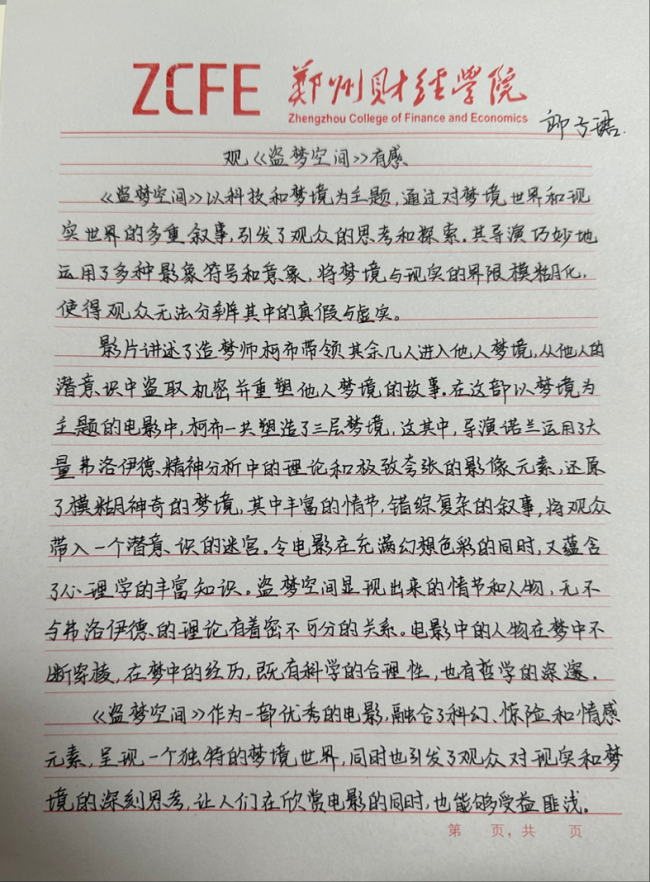 ZCFE 郑州财经学院
Zhengzhou College of Finance and Economics
观《盗梦空间》有感
《盗梦空间》以科技和梦境为主题,通过对梦境世界和现
实世界的多重叙事,引发了观众的思考和探索。其导演巧妙地
运用了多种影象符号和意象,将梦境与现实的界限模糊化,
使得观众无法分辨其中的真假与虚实。
影片讲述了造梦师柯布带领其余几人进入他人梦境,从他人的
潜意识中盗取机密并重塑他人梦境的故事。在这部以梦境为
主题的电影中,柯布一共塑造了三层梦境,这其中,导演诺兰运用了大
量弗洛伊德精神分析中的理论和极致夸张的影像元素,还原
了模糊神奇的梦境,其中丰富的情节,错综复杂的叙事,将观众
带入一个潜意识的迷宫。令电影在充满幻想色彩的同时,又蕴含
了心理学的丰富知识。盗梦空间显现出来的情节和人物,无不
与弗洛伊德的理论有着密不可分的关系。电影中的人物在梦中不
断穿梭,在梦中的经历,既有科学的合理性,也有哲学的深邃。
《盗梦空间》作为一部优秀的电影,融合了科幻、惊险和情感
元素,呈现一个独特的梦境世界,同时也引发了观众对现实和梦
境的深刻思考,让人们在欣赏电影的同时,也能够受益匪浅。
第 页,共 页